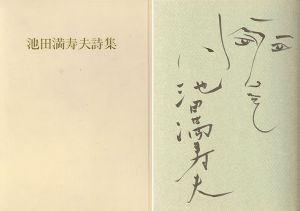 池田満寿夫詩集
池田満寿夫